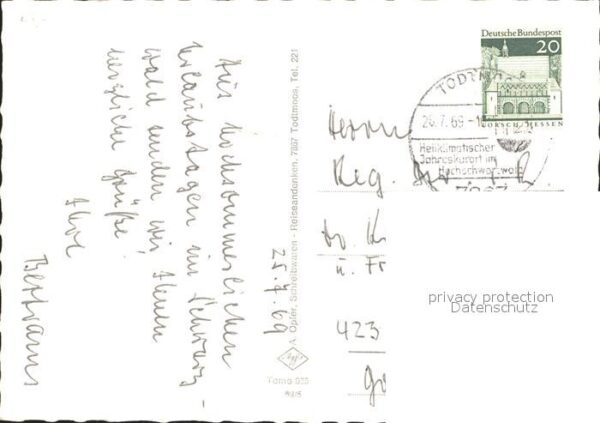 Aus hochsommerlichen
Urlaubstagen im Schwarz-
wald senden wir Ihnen
herzliche Grüße.
Ihre
Bertrams
25.7.69
A. Opfer, Schreibwaren - Reiseandenken, 7867 Todtmoos, Tel. 221
Agfa
Deutsche Bundespost
20
LORSCH/HESSEN
TODTMOOS
26.7.69
Heilklimatischer
Jahreskurort im
Hochschwarzwald
7867
Herrn
Reg.
Dr.
u.
423
privacy protection
Datenschutz